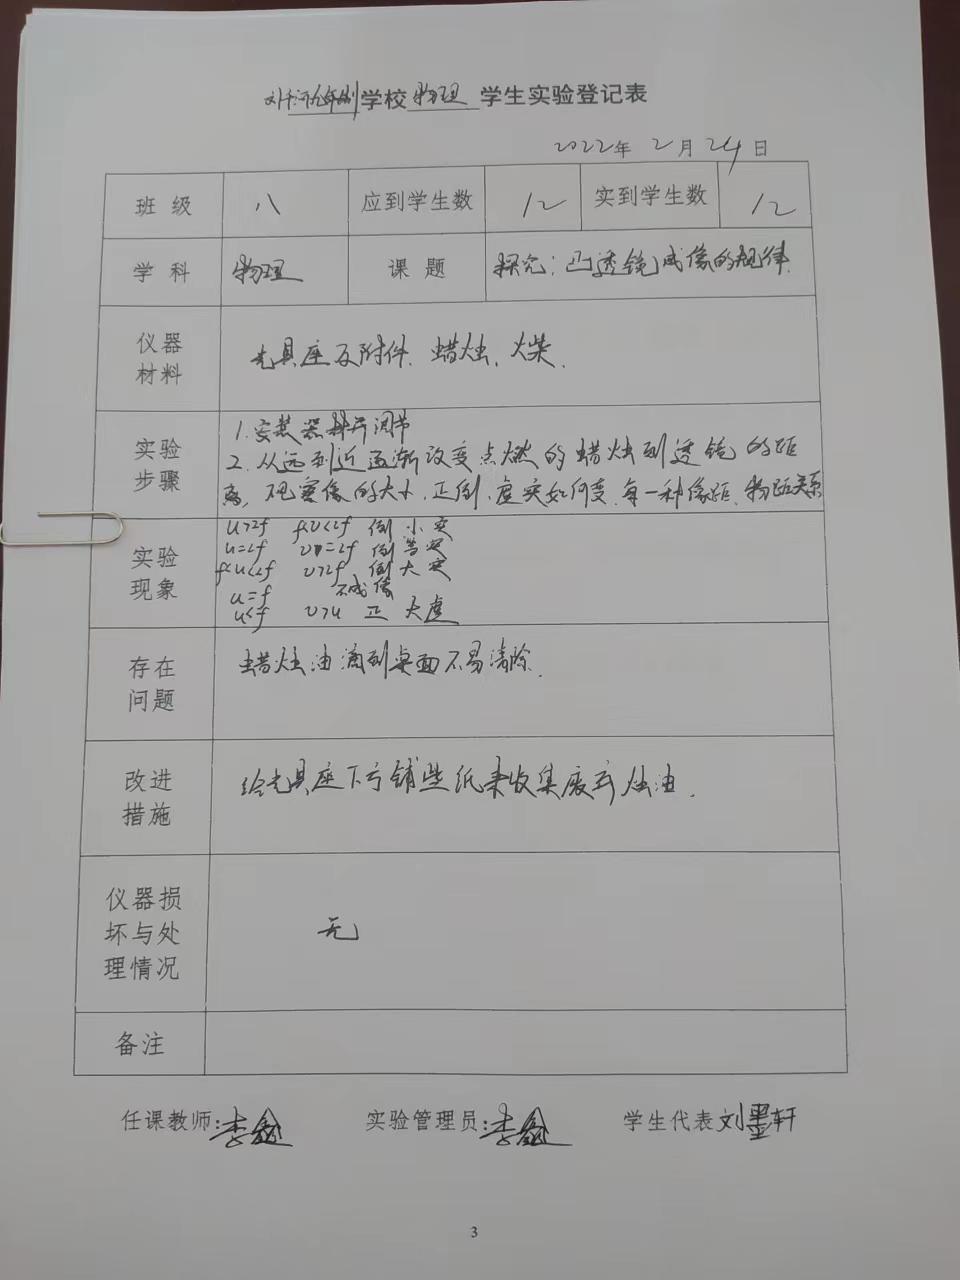 学校 物理 学生实验登记表
2022年 2月 24日
班 级 八 应到学生数 12 实到学生数 12
学 科 物理 课 题 探究:凸透镜成像的规律.
仪器
材料
光具座及附件. 蜡烛. 火柴.
实验
步骤
1.安装器材并调节
2.从远到近逐渐改变点燃的蜡烛到透镜的距
离,观察像的大小,正倒,虚实如何变.每一种像距.物距关系
实验
现象
u>2f f<v<2f 倒 小 实
u=2f v=2f 倒 等 实
f<u<2f v>2f 倒 大 实
u=f 不成像
u<f v>u 正 大虚
存在
问题
蜡烛油滴到桌面不易清除.
改进
措施
给光具座下方铺些纸来收集废弃烛油.
仪器损
坏与处
理情况
无
备注
任课教师:李鑫 实验管理员:李鑫 学生代表 刘墨轩
3